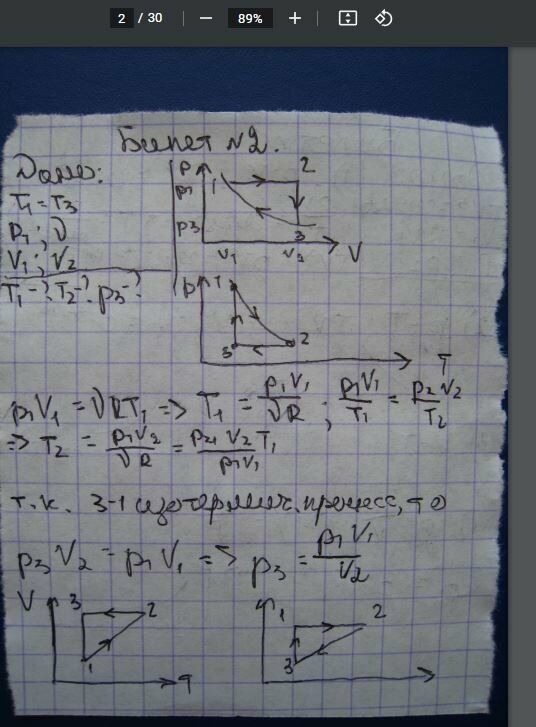 2 / 30 89%
Билет №2.
Дано:
T₁=T₃
p₁; ν
V₁; V₂
T₁-? T₂-? p₃-?
p
p₁ 1 2
p₃ 3
V₁ V₂ V
p 1
3 2
T
p₁V₁ = νRT₁ => T₁ = p₁V₁/νR ; p₁V₁/T₁ = p₂V₂/T₂
=> T₂ = p₁V₂/νR = p₂V₂T₁/p₁V₁
т.к. 3-1 изотермич. процесс, то
p₃V₂ = p₁V₁ => p₃ = p₁V₁/V₂
V 3 2
1 T
1 2
3